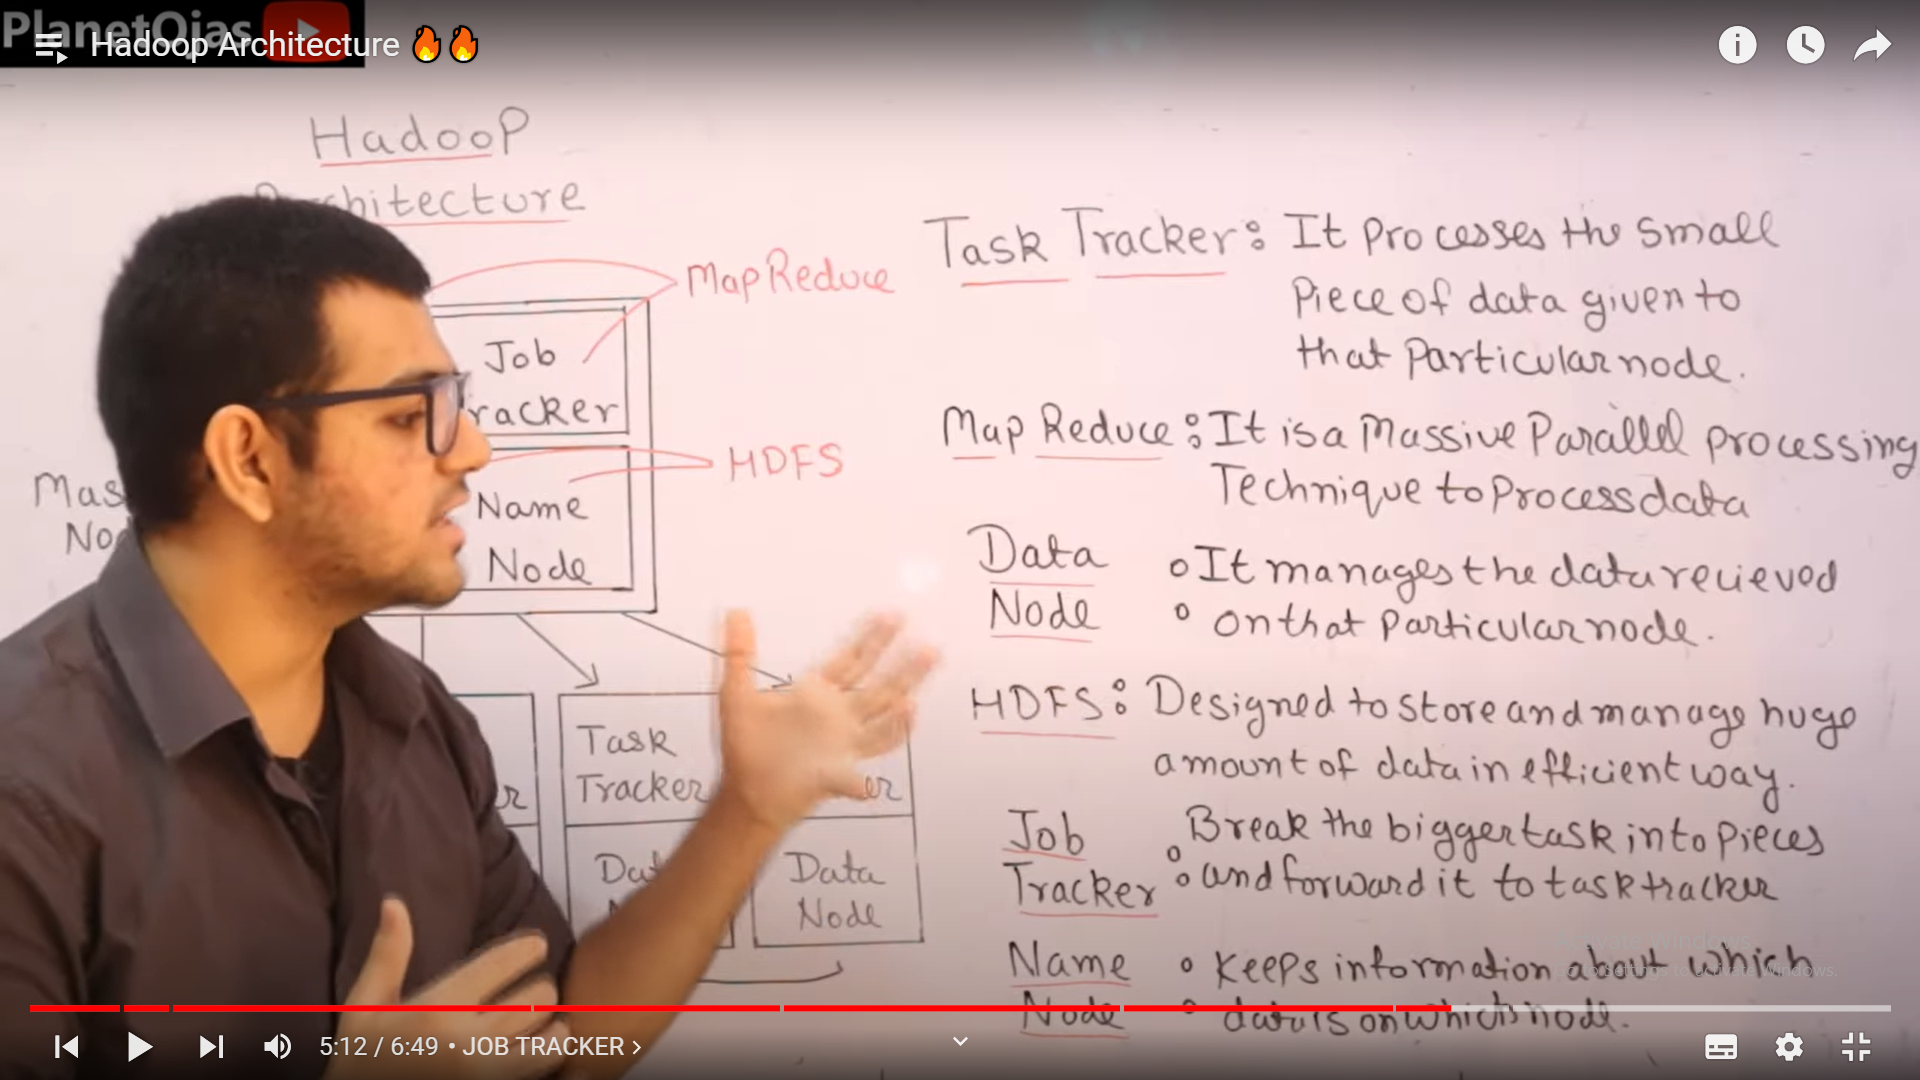 PlanetOjas
Hadoop Architecture 🔥🔥
Hadoop
Architecture
MapReduce
Job
Tracker
HDFS
Name
Node
Task
Tracker
Data
Node
Task Tracker: It processes the small
Piece of data given to
that Particular node.
Map Reduce: It is a Massive Parallel processing
Technique to Process data
Data
Node
: It manages the data recieved
on that Particular node.
HDFS: Designed to store and manage huge
amount of data in efficient way.
Job
Tracker
: Break the bigger task into Pieces
and forward it to task tracker
Name
Node
: Keeps information about which
data is on which node.
Activate Windows
Go to Settings to activate Windows.
5:12 / 6:49 • JOB TRACKER >